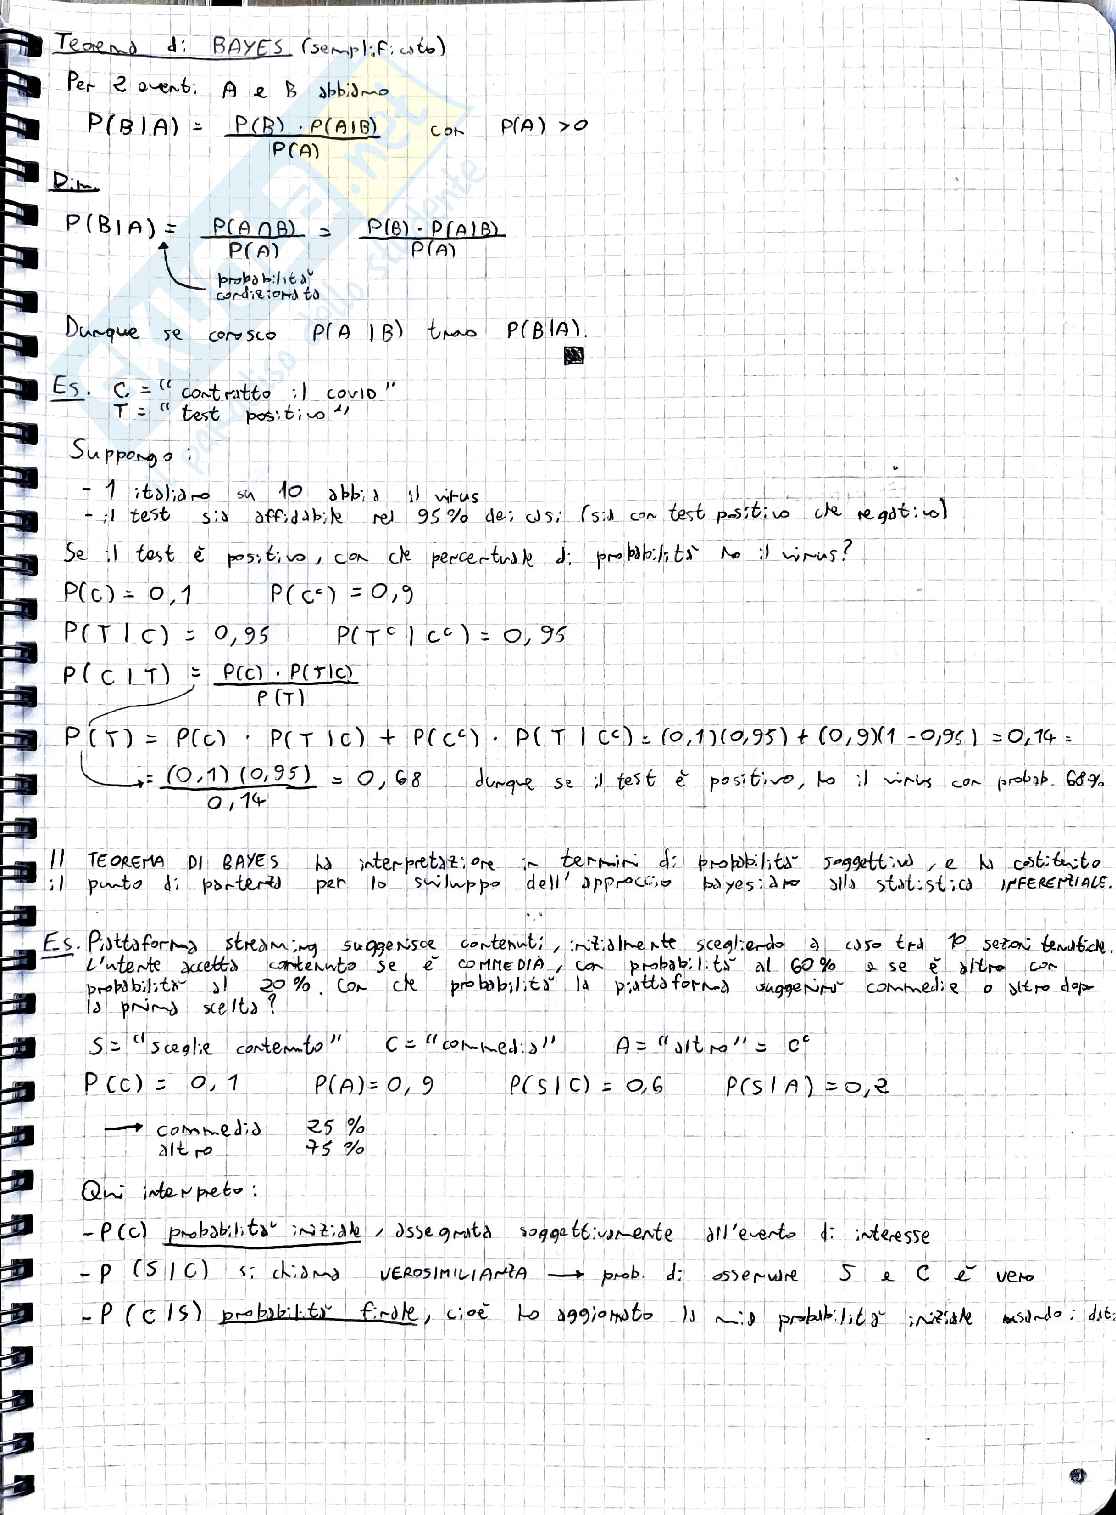 Teorema di BAYES (semplificato)
Per 2 eventi A e B abbiamo
P(B|A) = P(B) · P(A|B) / P(A) con P(A) > 0
Dim.
P(B|A) = P(A∩B) / P(A) = P(B) · P(A|B) / P(A)
probabilità
condizionata
Dunque se conosco P(A|B) trovo P(B|A).
Es. C = "contratto il covid"
T = "test positivo"
Suppongo:
- 1 italiano su 10 abbia il virus
- il test sia affidabile nel 95% dei casi (sia con test positivo che negativo)
Se il test è positivo, con che percentuale di probabilità ho il virus?
P(C) = 0,1 P(Cᶜ) = 0,9
P(T|C) = 0,95 P(Tᶜ|Cᶜ) = 0,95
P(C|T) = P(C) · P(T|C) / P(T)
P(T) = P(C) · P(T|C) + P(Cᶜ) · P(T|Cᶜ) = (0,1)(0,95) + (0,9)(1-0,95) = 0,14 =
= (0,1)(0,95) / 0,14 = 0,68 dunque se il test è positivo, ho il virus con probab. 68%
Il TEOREMA DI BAYES ha interpretazione in termini di probabilità soggettiva, e ha costituito
il punto di partenza per lo sviluppo dell'approccio bayesiano alla statistica INFERENZIALE.
Es. Piattaforma streaming suggerisce contenuti, inizialmente scegliendo a caso tra 10 sezioni tematiche.
L'utente accetta contenuto se è COMMEDIA, con probabilità al 60% e se è altro con
probabilità al 20%. Con che probabilità la piattaforma suggerirà commedie o altro dopo
la prima scelta?
S = "sceglie contenuto" C = "commedia" A = "altro" = Cᶜ
P(C) = 0,1 P(A) = 0,9 P(S|C) = 0,6 P(S|A) = 0,2
→ commedia 25 %
altro 75 %
Qui interpreto:
- P(C) probabilità iniziale, assegnata soggettivamente all'evento di interesse
- P(S|C) si chiama VEROSIMILIANZA → prob. di osservare S e C è vero
- P(C|S) probabilità finale, cioè ho aggiornato la mia probabilità iniziale usando i dati